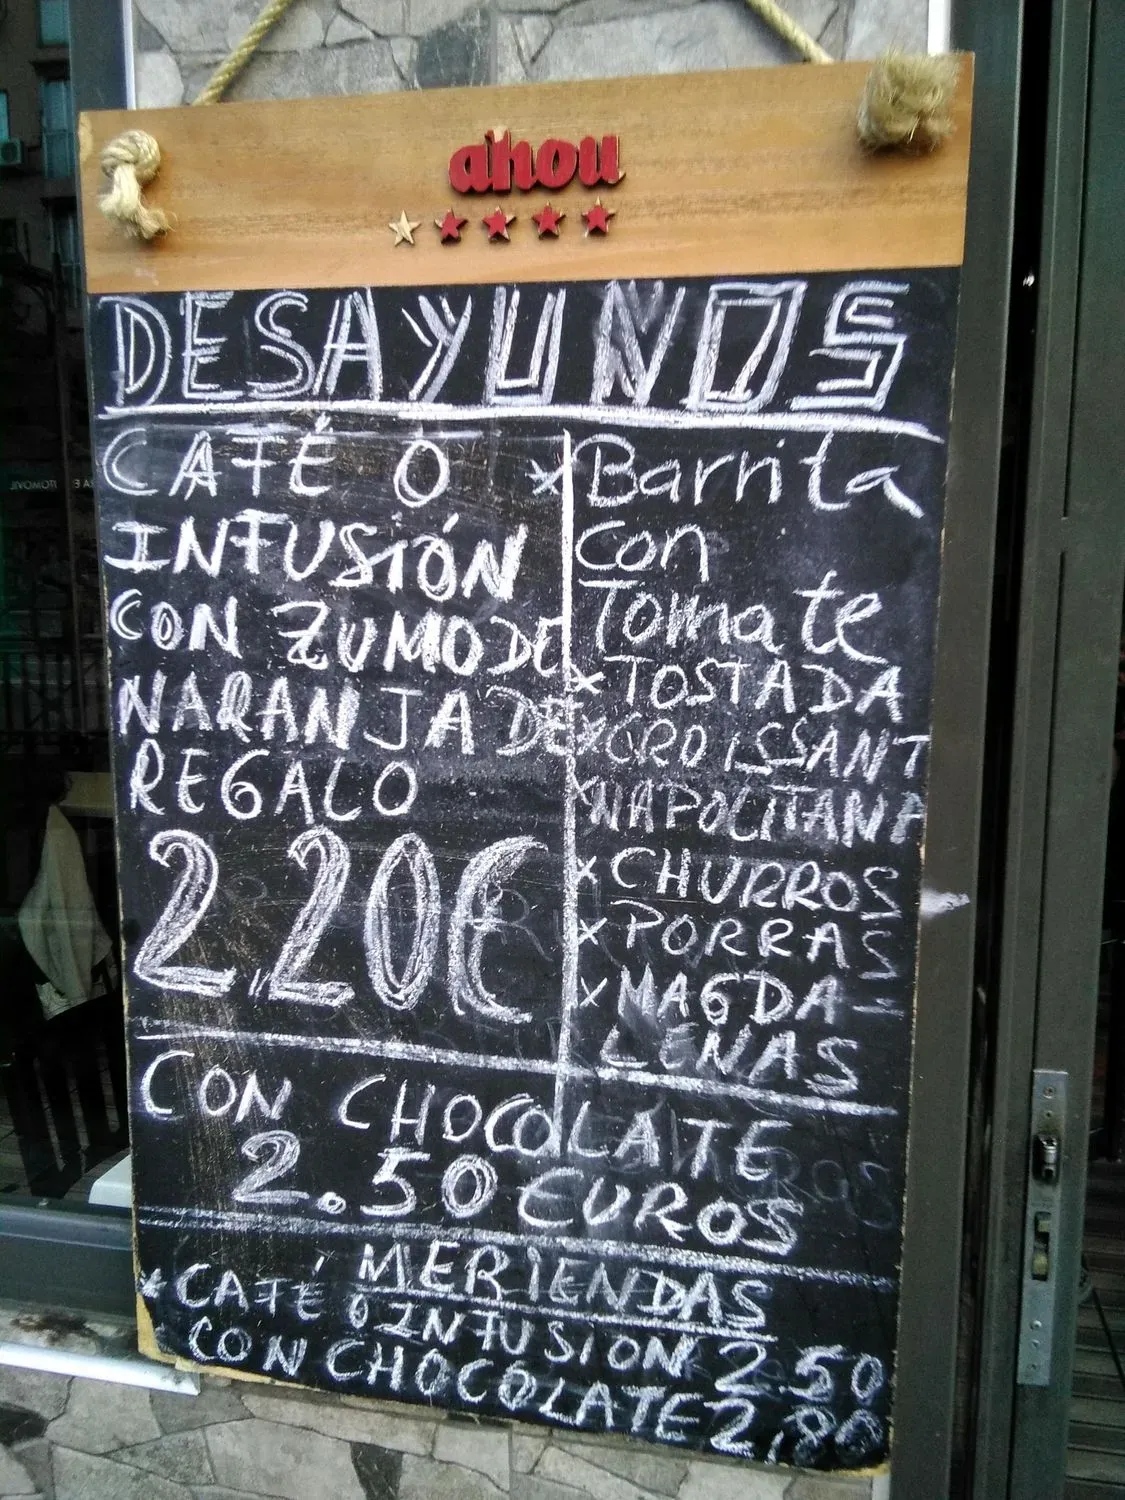 ahou
DESAYUNOS
CAFÉ Ó
INFUSIÓN
CON ZUMO DE
NARANJA DE
REGALO
2,20€
* Barrita
con
Tomate
x TOSTADA
x CROISSANT
x NAPOLITANA
x CHURROS
x PORRAS
x MAGDA-
LENAS
CON CHOCOLATE
2.50 EUROS
MERIENDAS
* CAFÉ Ó INFUSION 2.50
CON CHOCOLATE 2,80